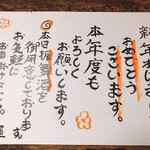 新年あけまして
おめでとう
ございます。
本年度も
よろしく
お願いします。
本日振舞酒を
御用意しております
お気軽に
お声掛け